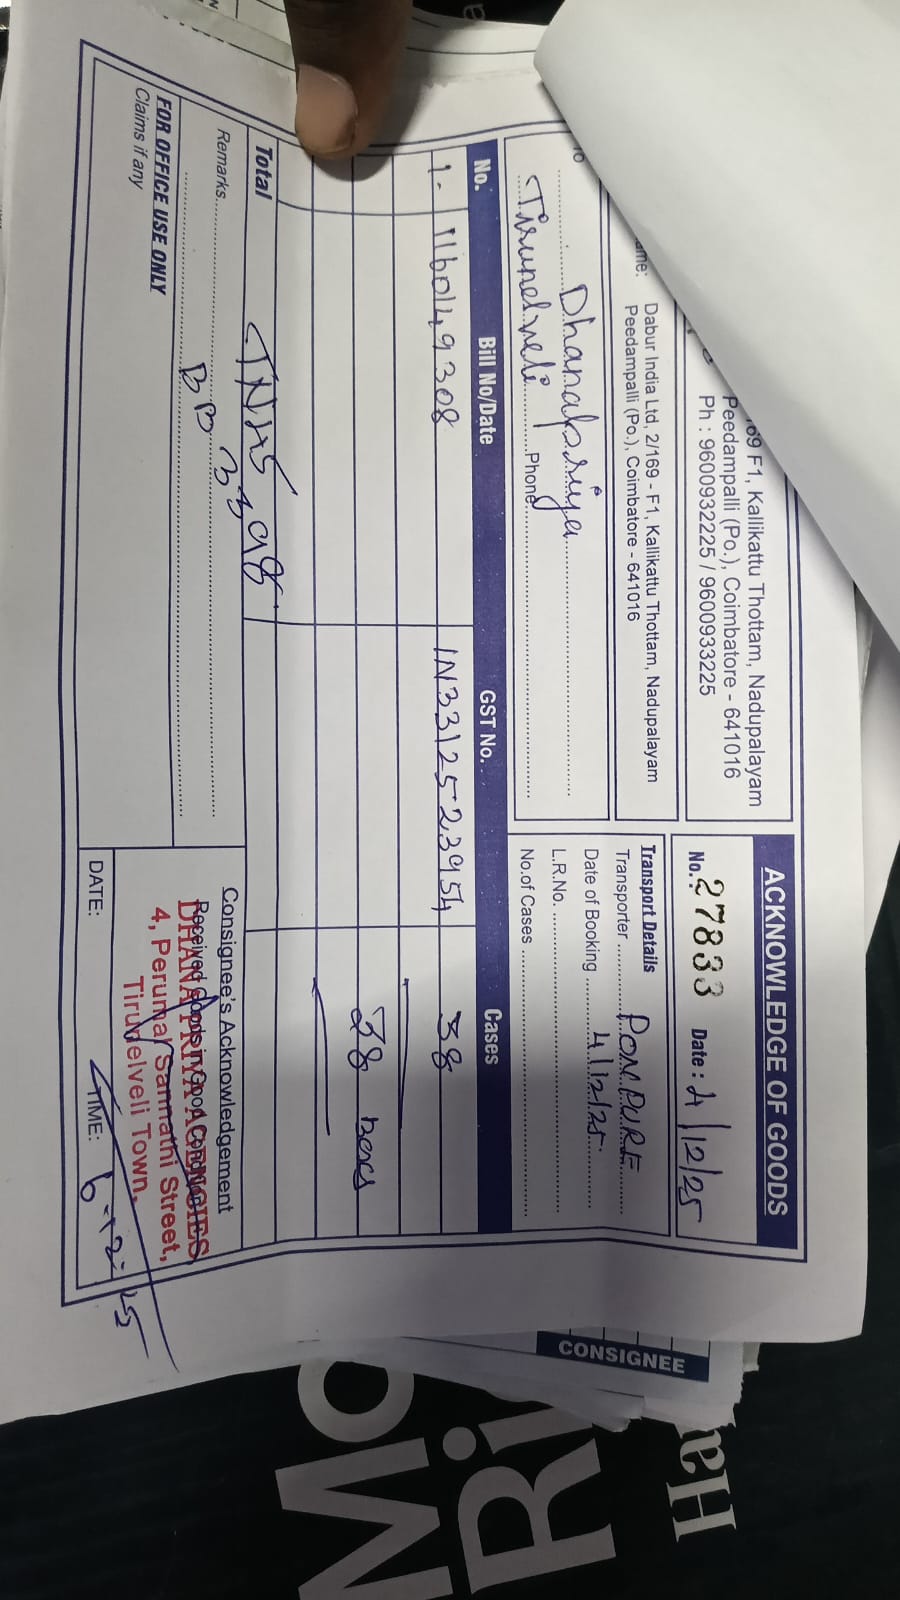 ACKNOWLEDGE OF GOODS
169 F1, Kallikattu Thottam, Nadupalayam
Peedampalli (Po.), Coimbatore - 641016
Ph : 9600932225 / 9600933225
No.: 27833 Date : 4/12/25
ame: Dabur India Ltd, 2/169 - F1, Kallikattu Thottam, Nadupalayam
Peedampalli (Po.), Coimbatore - 641016
To
Dhanapriya
Tirunelveli Phone
Transport Details
Transporter PONPURE
Date of Booking 4/12/25
L.R.No.
No.of Cases
No. Bill No/Date GST No. Cases
1. 1160149308 IN3312523954 38
38 boxes
Total
TNHS
3398
Remarks
BB
FOR OFFICE USE ONLY
Claims if any
Consignee's Acknowledgement
Received Goods in Good Condition
DHANA PRIYA AGENCIES
4, Perumal Sannathi Street,
Tirunelveli Town.
DATE: TIME: 6-12-25
CONSIGNEE